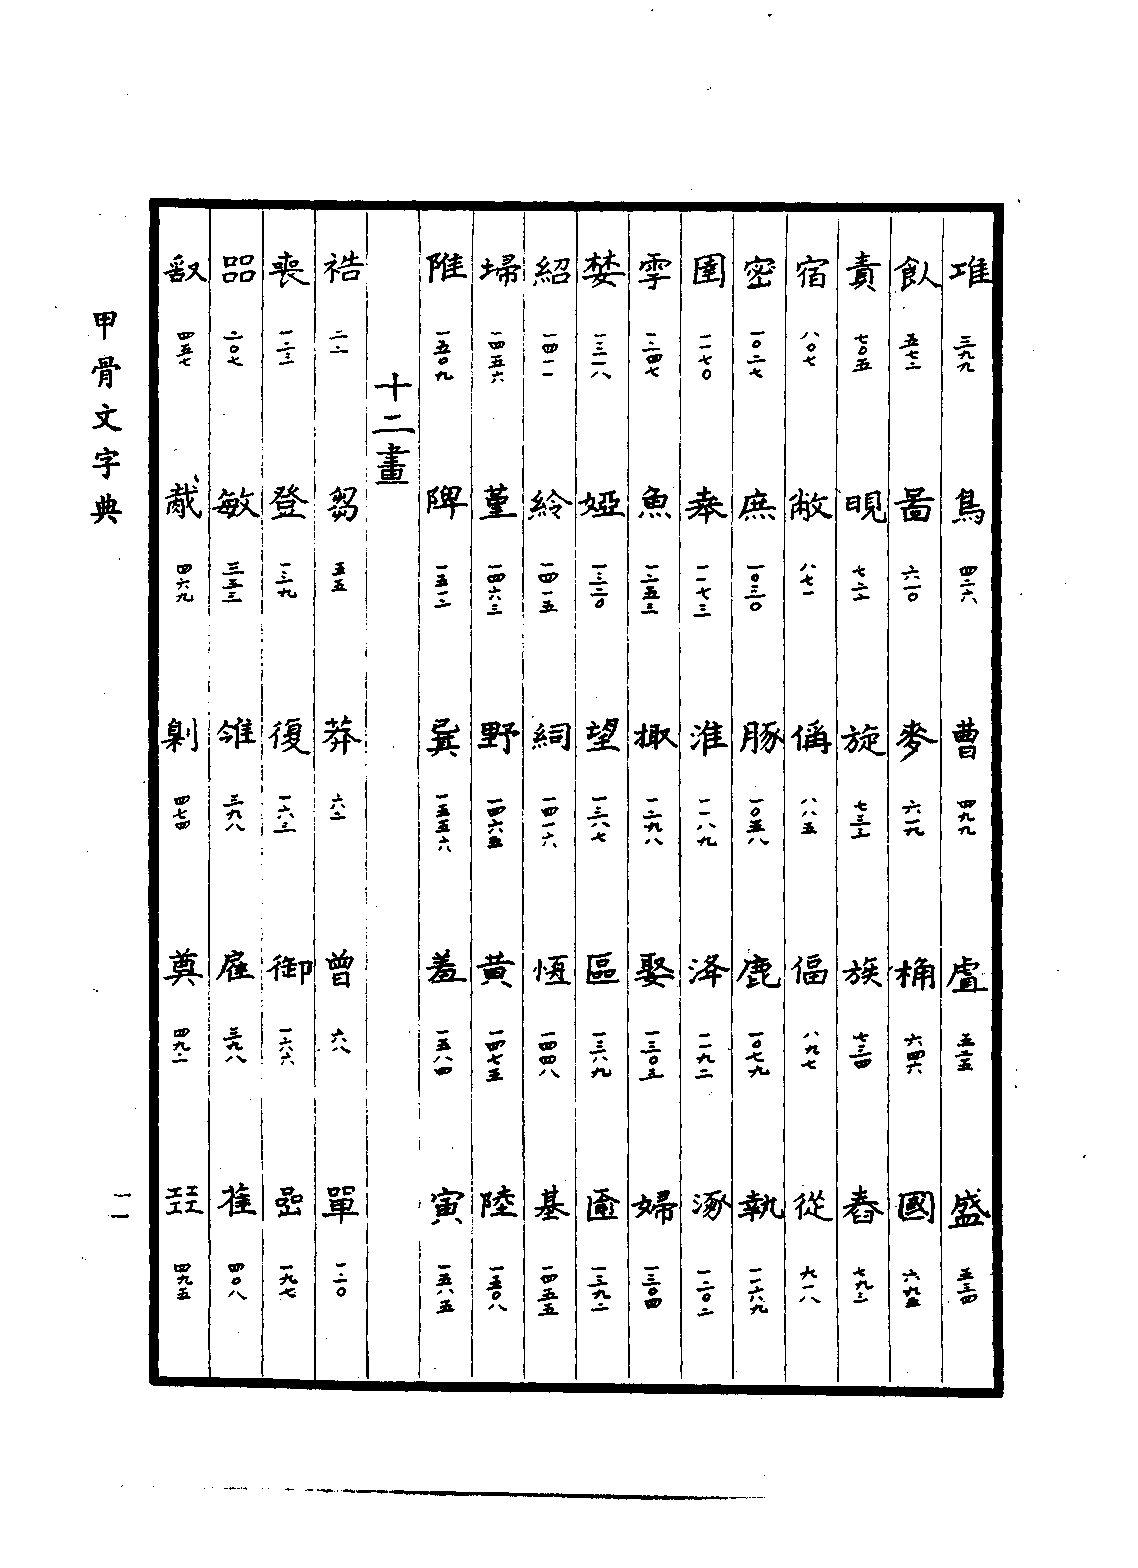 三九九 鳥 四二六 曹 四九九 盧 五三四 盛
飤 五七二 啚 六一〇 麥 六一九 桶 六四六 國 六九五
責 七〇五 晛 七二二 旋 七三三 族 七三四 舂 七九二
宿 八〇七 敝 八七一 偁 八八五 偪 八九七 從 九一八
密 一〇二七 庶 一〇三〇 豚 一〇五八 鹿 一〇七九 執 一一六九
圉 一一七〇 一一七三 淮 一一八九 洚 一一九二 涿 一二〇二
雩 一二四七 魚 一二五三 掫 一二九八 娶 一三〇三 婦 一三〇四
婪 一三二八 婭 一三三〇 望 一三六七 區 一三六九 一三九二
紹 一四一一 紷 一四一五 一四一六 恆 一四四八 基 一四五五
埽 一四五六 堇 一四六三 野 一四六五 黃 一四七五 陸 一五〇八
陮 一五〇九 陴 一五一二 一五五六 羞 一五八四 寅 一五八五
十二畫
祰 二二 芻 五五 莽 六二 曾 六八 單 一二〇
喪 一二三 登 一三九 復 一六三 御 一六六 喦 一九七
㗊 二〇七 敏 三五三 雂 三九八 雇 三九八 萑 四〇八
㕡 四五七 胾 四六九 㓷 四七四 奠 四九二 㠭 四九五
甲骨文字典
一一